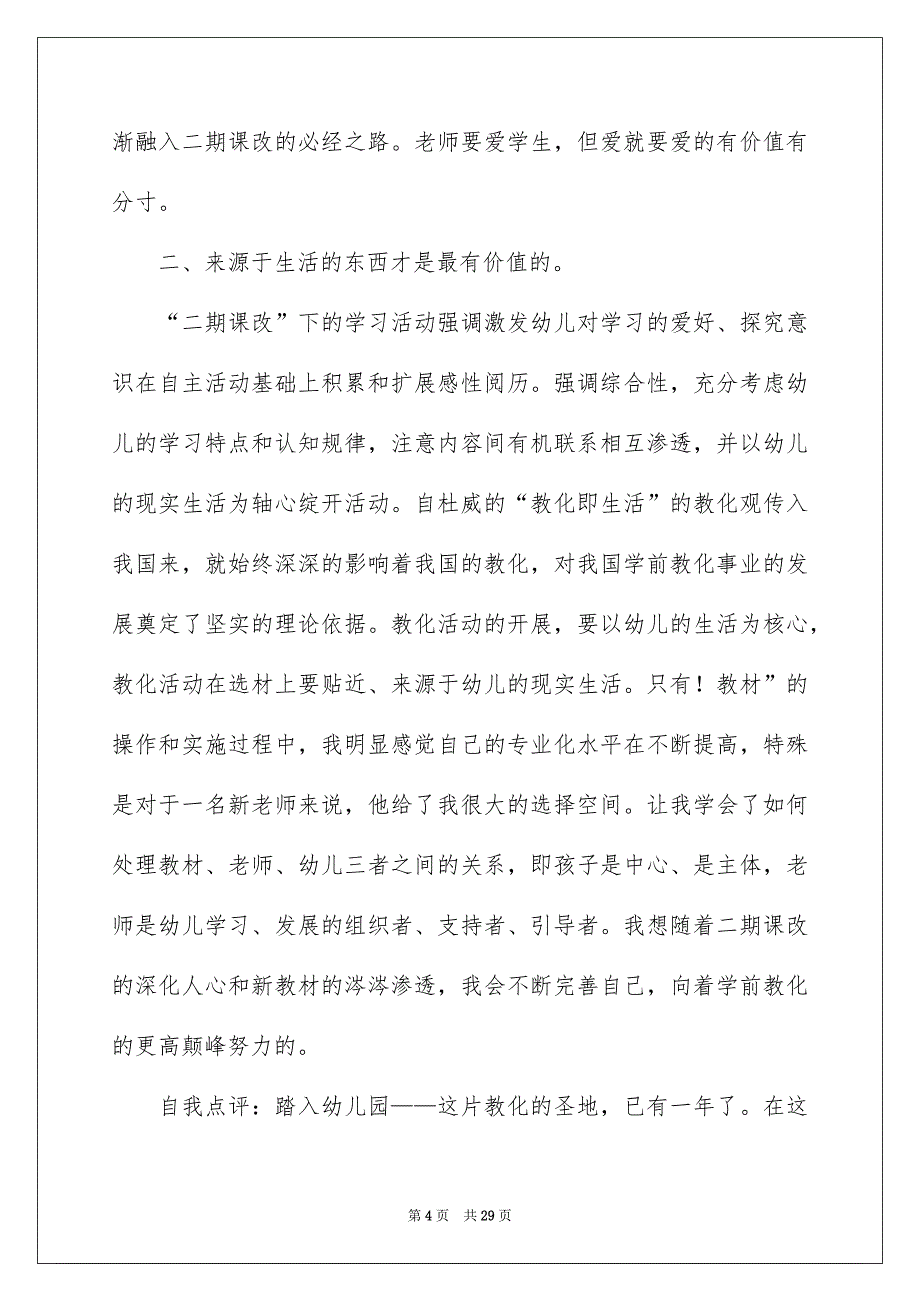 渐融入二期课改的必经之路。老师要爱学生，但爱就要爱的有价值有
分寸。
二、来源于生活的东西才是最有价值的。
“二期课改”下的学习活动强调激发幼儿对学习的爱好、探究意
识在自主活动基础上积累和扩展感性阅历。强调综合性，充分考虑幼
儿的学习特点和认知规律，注意内容间有机联系相互渗透，并以幼儿
的现实生活为轴心绽开活动。自杜威的“教化即生活”的教化观传入
我国来，就始终深深的影响着我国的教化，对我国学前教化事业的发
展奠定了坚实的理论依据。教化活动的开展，要以幼儿的生活为核心，
教化活动在选材上要贴近、来源于幼儿的现实生活。只有！教材”的
操作和实施过程中，我明显感觉自己的专业化水平在不断提高，特殊
是对于一名新老师来说，他给了我很大的选择空间。让我学会了如何
处理教材、老师、幼儿三者之间的关系，即孩子是中心、是主体，老
师是幼儿学习、发展的组织者、支持者、引导者。我想随着二期课改
的深化人心和新教材的涔涔渗透，我会不断完善自己，向着学前教化
的更高颠峰努力的。
自我点评：踏入幼儿园——这片教化的圣地，已有一年了。在这
第 4 页 共 29 页